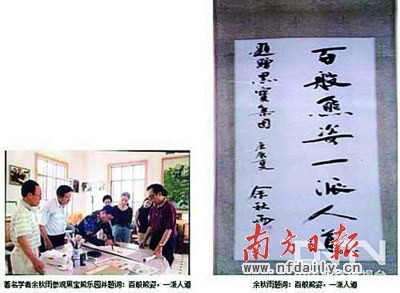 百般熊姿一派人道
题赠黑宝集团
庚辰夏 余秋雨
南方日报
www.nfdaily.cn
著名学者余秋雨参观黑宝熊乐园并题词:百般熊姿,一派人道
余秋雨题词:百般熊姿,一派人道